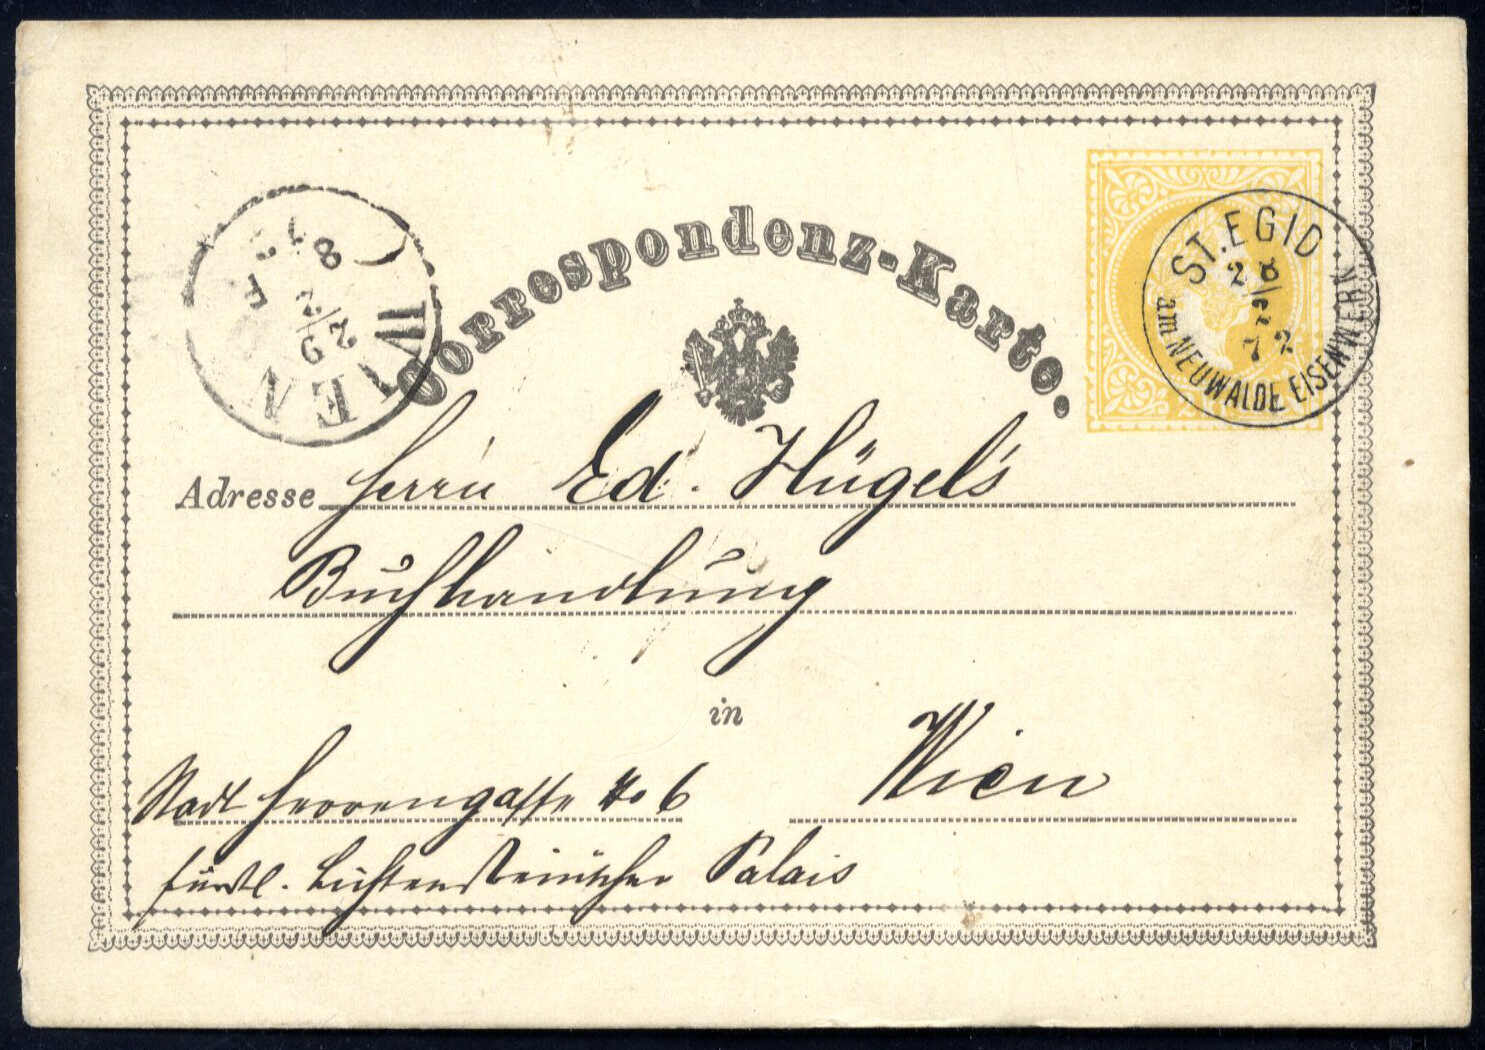 Correspondenz-Karte.
ST. EGID
28/12
72
am NEUWALDE EISENWERK
WIEN
Adresse Herrn Ed. Hügel's
Buchhandlung
in
Wien
Stadt Herrengasse No 6
fürstl. Lichtensteinischer Palais